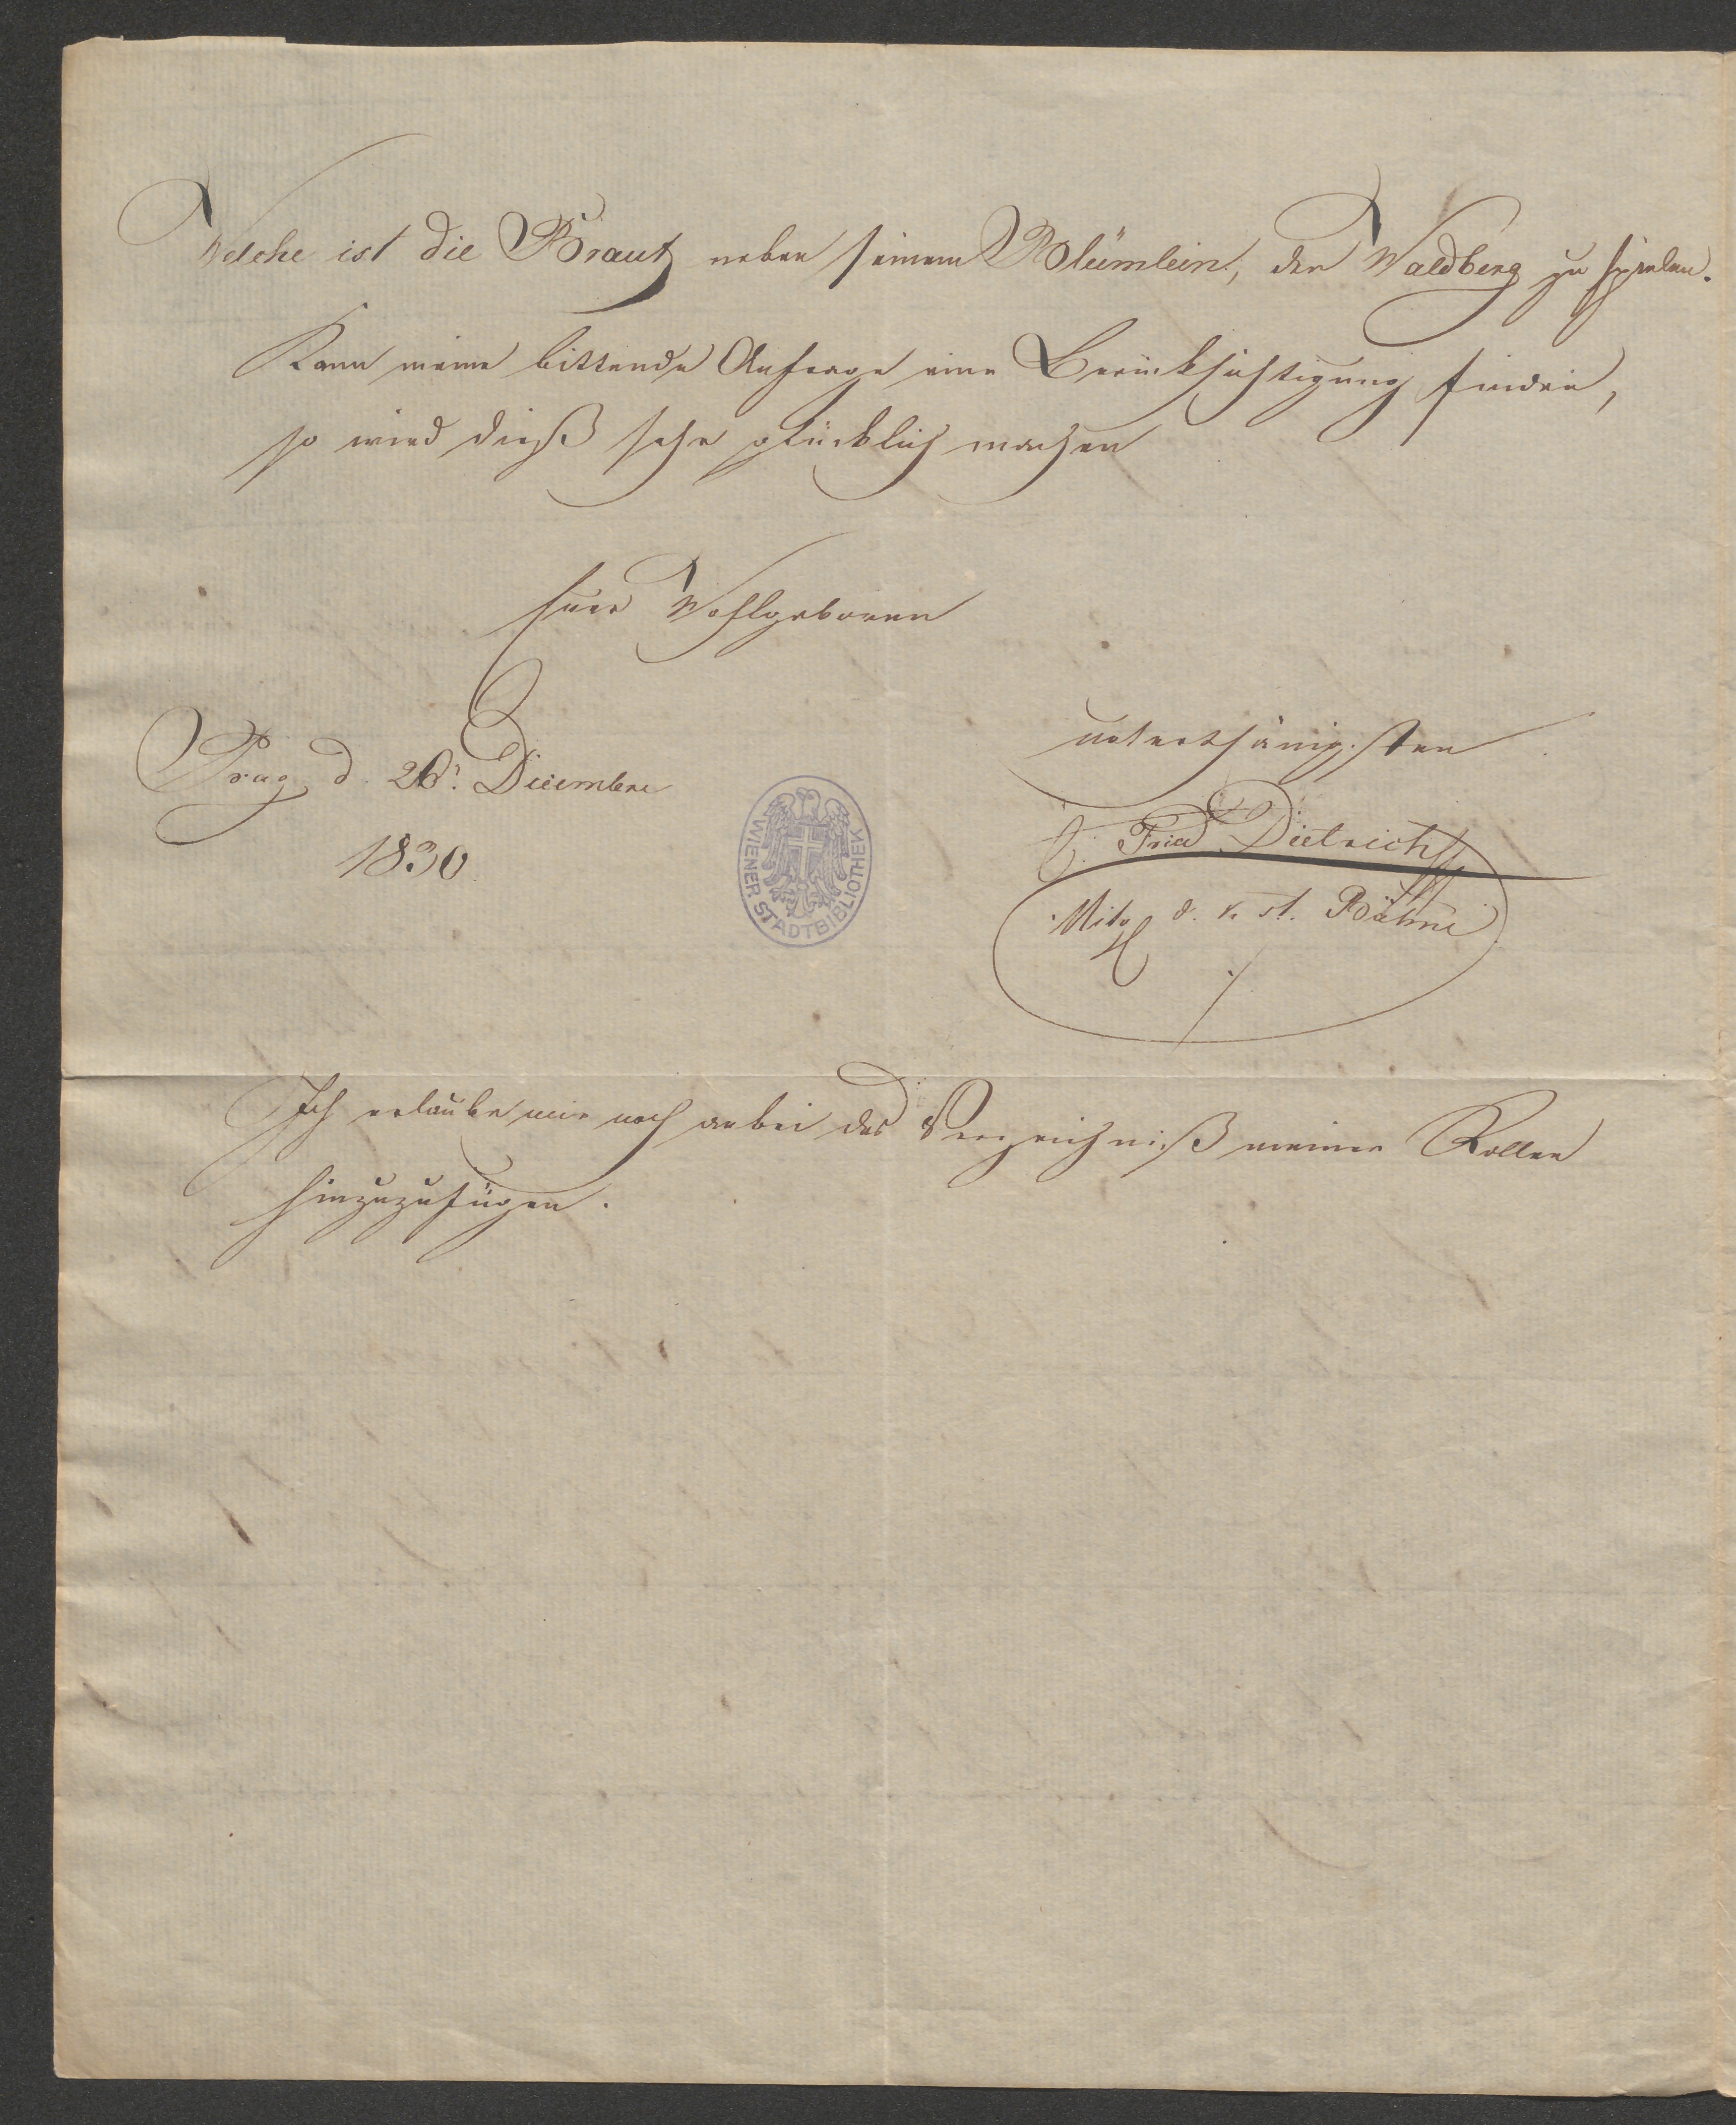 Welche ist die Braut neben seinem Blümlein, den Waldberg zu spielen.
Kann meine bittende Anfrage eine Berücksichtigung finden,
so wird dieß sehr glücklich machen
Euer Wohlgeboren
unterthänigsten
Prag d. 26. Dicembre
1830
Fried Dietrich
Mitgl d. k. st. Bühne
WIENER STADTBIBLIOTHEK
Ich erlaube mir noch anbei das Verzeichniß meiner Rollen
hinzuzufügen.